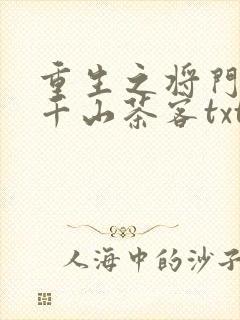 重生之将門
千山茶客txt
人海中的沙子